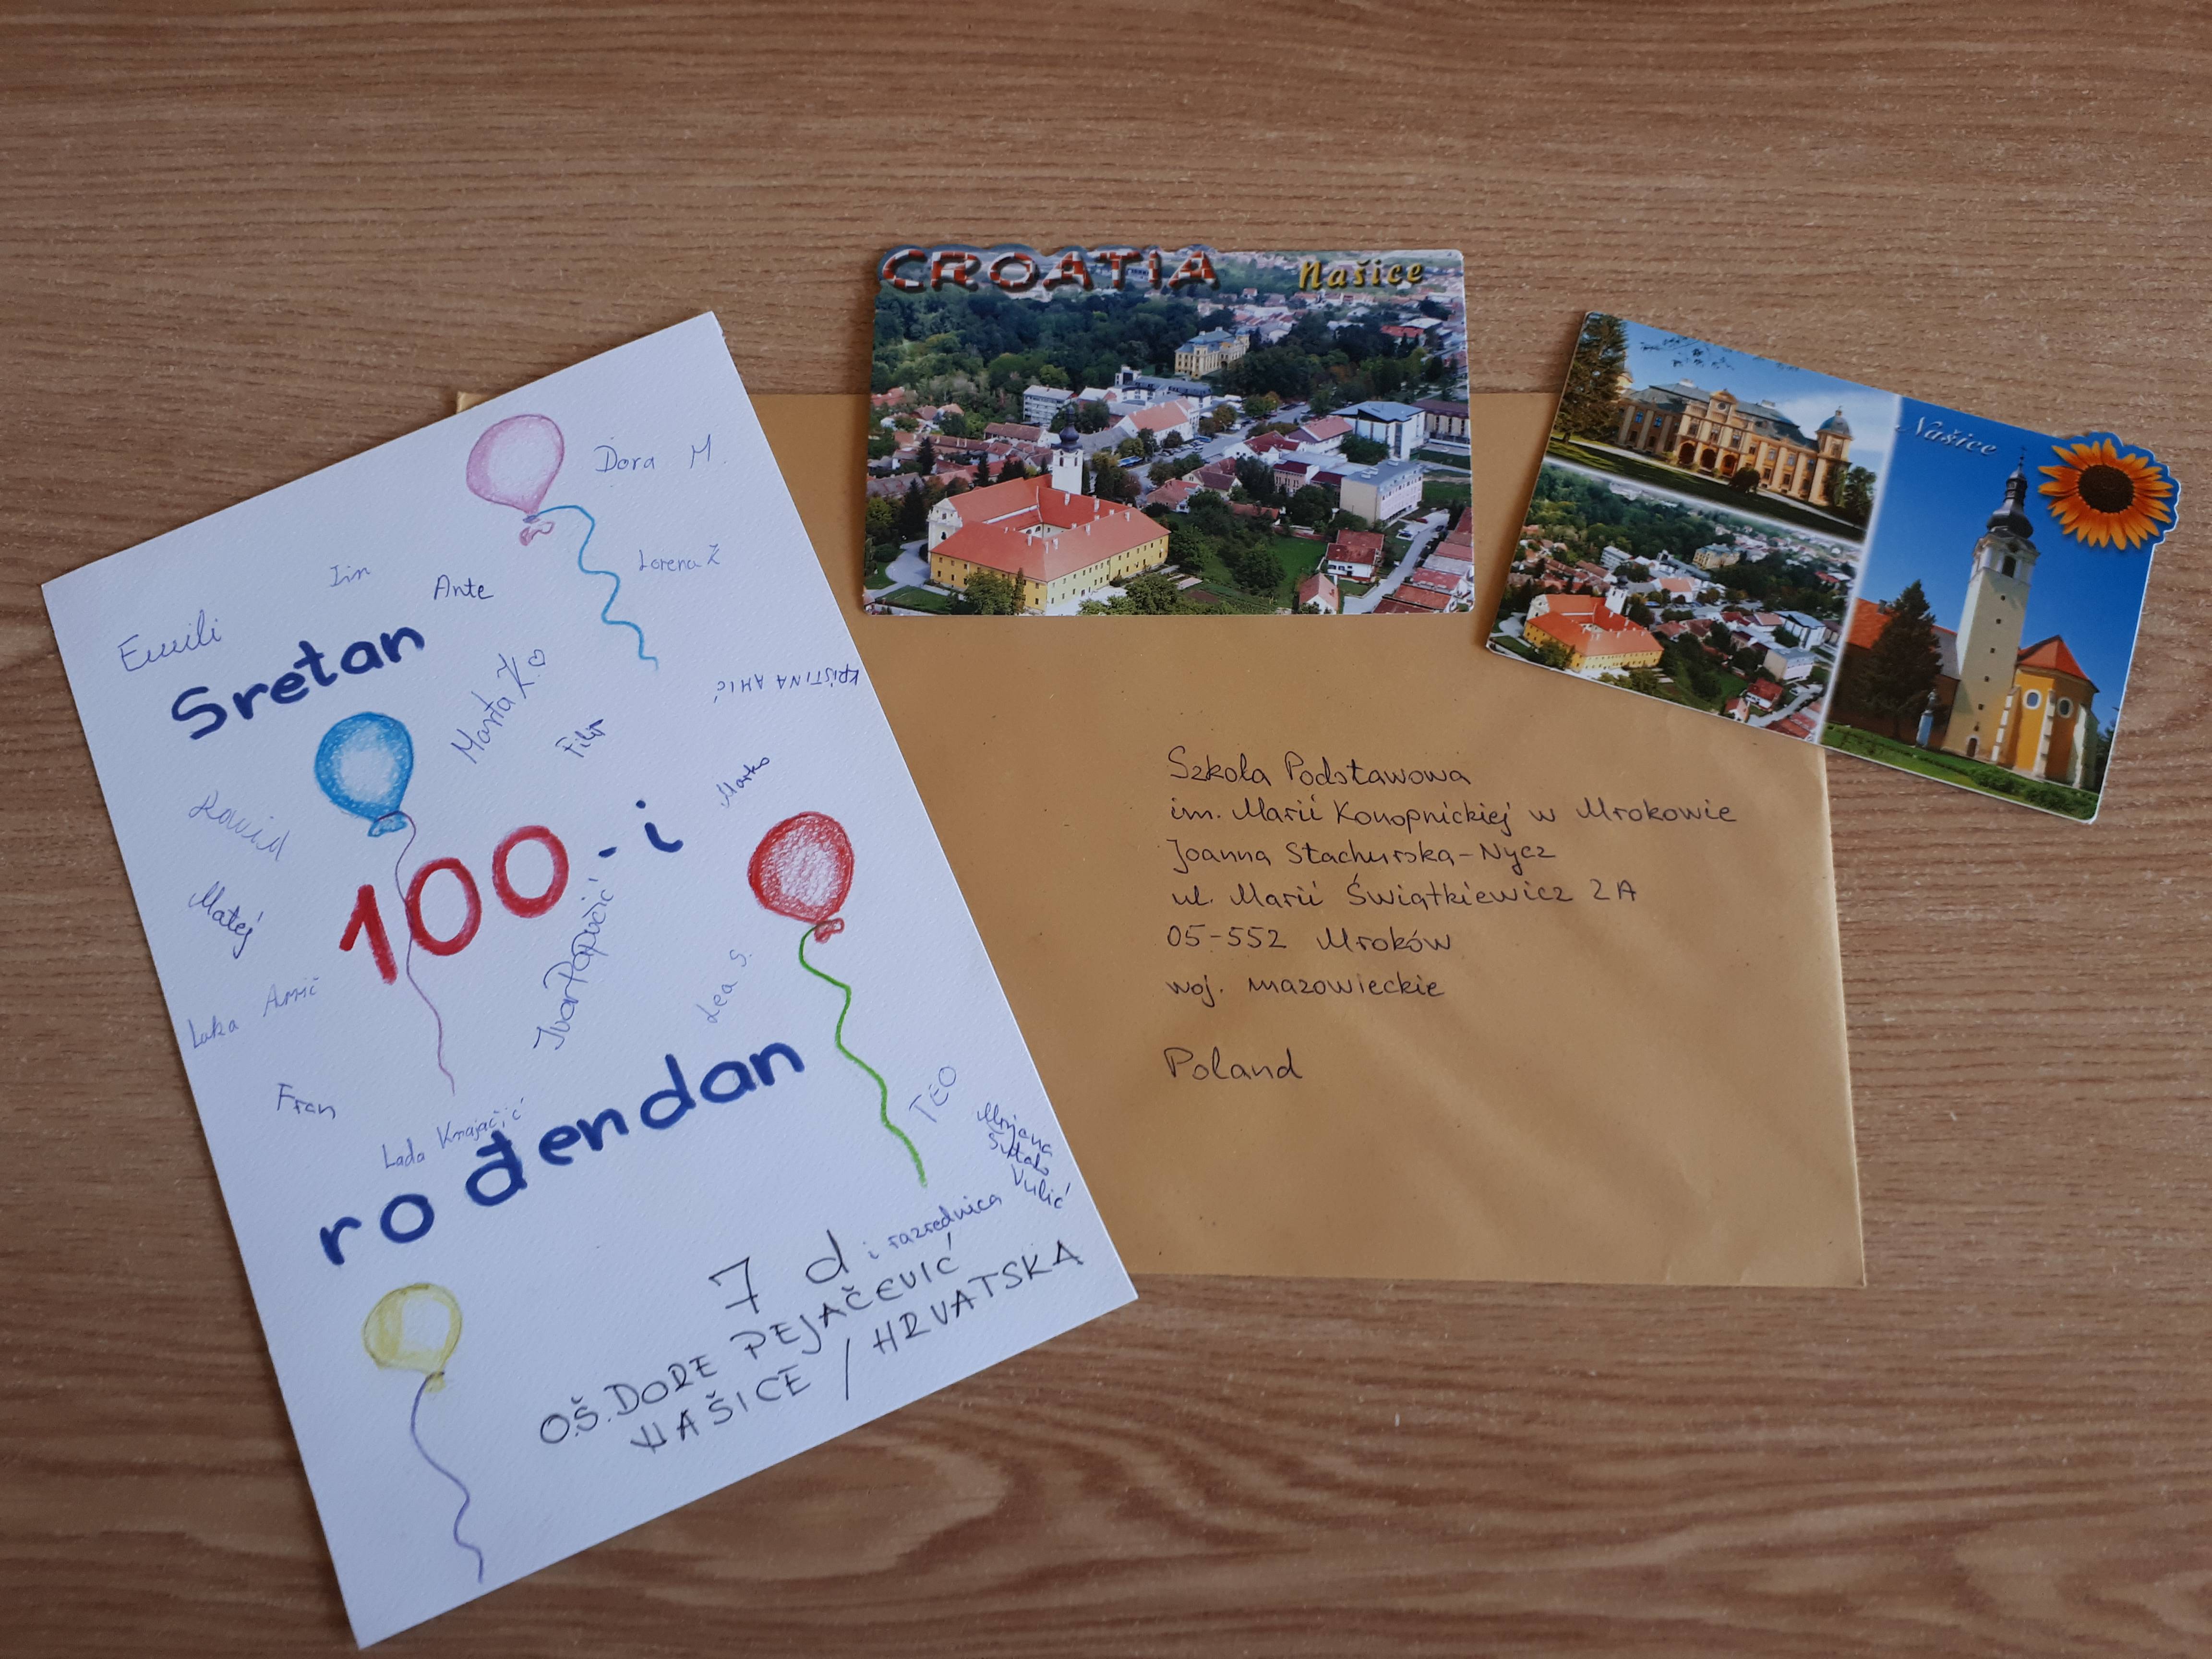 Dora M.
Lorena Ž
Ante
Emili
Sretan
Marta K.
KRISTINA AMIĆ
Filip
Marko
100-i
Matej
Luka Amić
Lea S.
Fran
Lada
rođendan
TEO
7 d i razrednica
Vulić
O.Š. DORE PEJAČEVIĆ
NAŠICE / HRVATSKA
CROATIA Našice
Našice
Szkoła Podstawowa
im. Marii Konopnickiej w Mrokowie
Joanna Stachurska-Nycz
ul. Marii Świątkiewicz 2A
05-552 Mroków
woj. mazowieckie
Poland